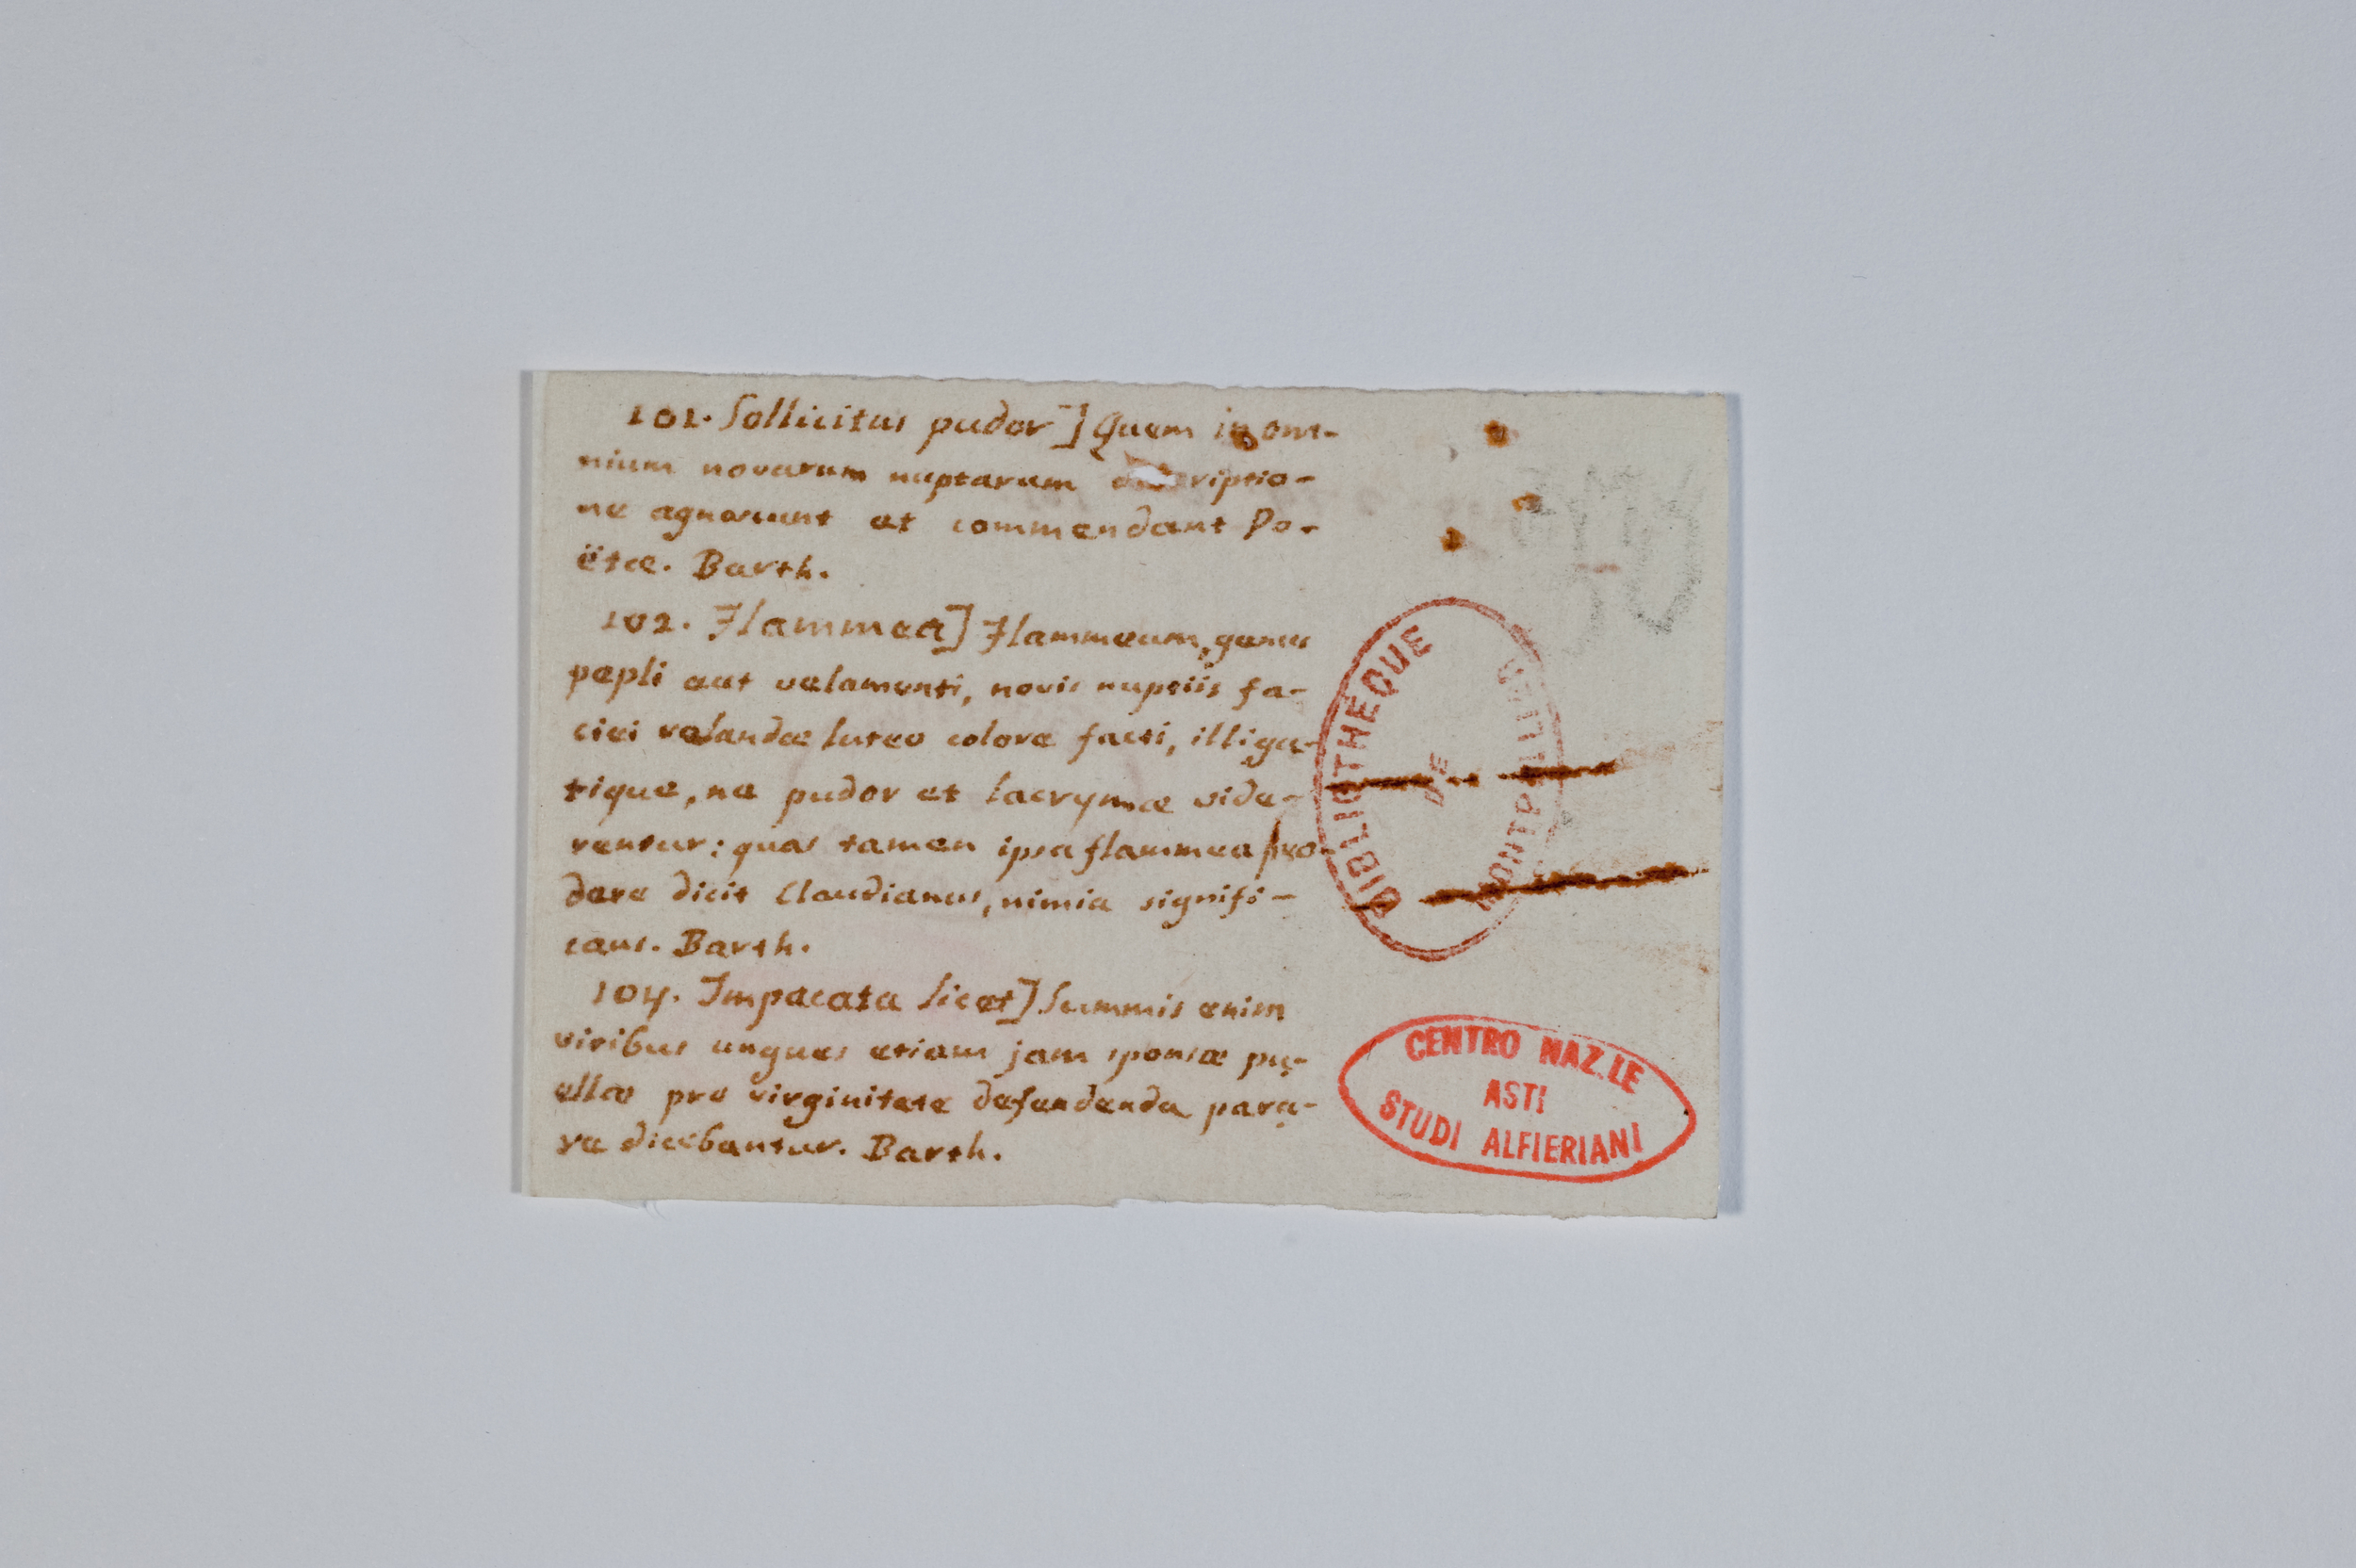 101. Sollicitus pudor] Quem in om-
nium novarum nuptarum descriptio-
ne agnoscunt et commendant Po-
ëtæ. Barth.
102. Flammea] Flammeum, genus
pepli aut velamenti, novis nuptiis fa-
ciei velandæ luteo colore facti, illiga-
tique, ne pudor et lacrymæ vide-
rentur: quas tamen ipsa flammea pro-
dere dicit Claudianus, nimia signifi-
cans. Barth.
104. Impacata licet] Summis enim
viribus ungues etiam jam sponsæ pu-
ellæ pro virginitate defendenda para-
re dicebantur. Barth.
BIBLIOTHEQUE
DE
MONTPELLIER
CENTRO NAZ.LE
ASTI
STUDI ALFIERIANI